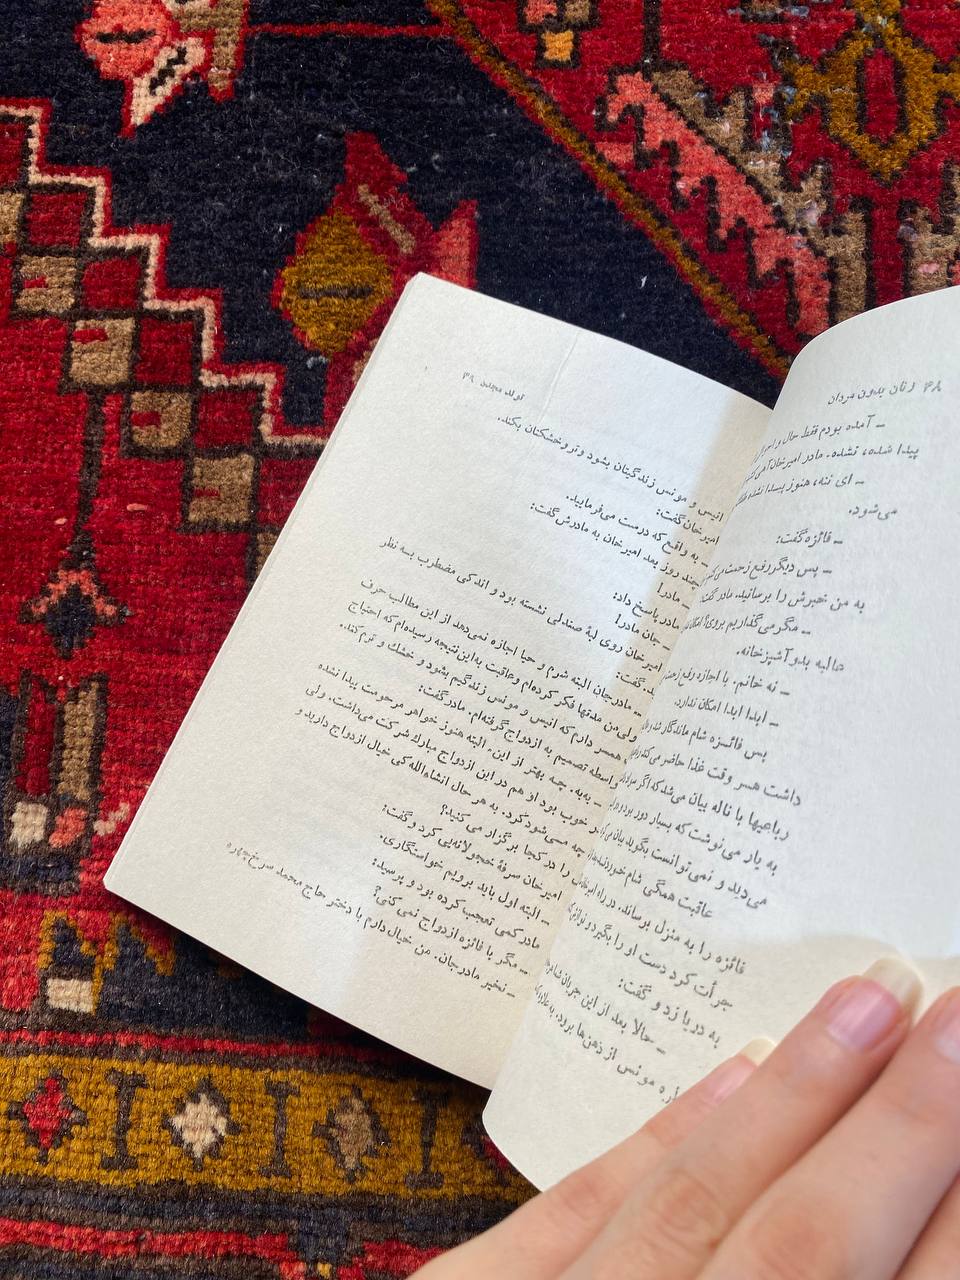 ۳۸ زنان بدون مردان
ـ آمده بودم فقط حال و احوال
پیدا شده، نشده. مادر امیرخان آهی
ـ ای ننه، هنوز پیدا نشده
می‌شود.
ـ فائزه گفت:
ـ پس دیگر رفع زحمت می‌کنم
به من خبرش را برسانید. مادر گفت:
ـ مگر می‌گذاریم بروی؟ امکان
عالیه بدو آشپزخانه.
ـ نه خانم. با اجازه رفع زحمت
ـ ابدا ابدا امکان ندارد.
پس فائزه شام ماندگار شد
داشت همسر وقت غذا حاضر می‌کند
رباعیها با ناله بیان می‌شد که اگر
به یار می‌نوشت که بسیار دور بود و
می‌دید و نمی‌توانست بگوید بیان
عاقبت همگی شام خوردند
فائزه را به منزل برساند. در راه
جرأت کرد دست او را بگیرد و
به دریا زد و گفت:
ـ حالا بعد از این جریان
مونس از ذهن‌ها برود.
تولد مجدد ۳۹
انیس و مونس زندگیتان بشود و تر و خشکتان بکند.
امیرخان گفت:
ـ به واقع که درست می‌فرمایید.
چند روز بعد امیرخان به مادرش گفت:
ـ مادر!
مادر پاسخ داد:
ـ جان مادر!
امیرخان روی لبهٔ صندلی نشسته بود و اندکی مضطرب به نظر
گفت:
ـ مادرجان البته شرم و حیا اجازه نمی‌دهد از این مطالب حرف
ولی من مدتها فکر کرده‌ام و عاقبت به این نتیجه رسیده‌ام که احتیاج
همسر دارم که انیس و مونس زندگیم بشود و خشک و ترم کند.
واسطه تصمیم به ازدواج گرفته‌ام. مادر گفت:
ـ به‌به. چه بهتر از این. البته هنوز خواهر مرحومت پیدا نشده
خوب بود او هم در این ازدواج مبارک شرکت می‌داشت. ولی
چه می‌شود کرد. به هر حال انشاءالله کی خیال ازدواج دارید و
را در کجا برگزار می‌کنید؟
امیرخان سرفهٔ خجولانه‌یی کرد و گفت:
ـ البته اول باید برویم خواستگاری.
مادر کمی تعجب کرده بود و پرسید:
ـ مگر با فائزه ازدواج نمی‌کنی؟
ـ نخیر مادرجان. من خیال دارم با دختر حاج محمد سرخ‌چهره